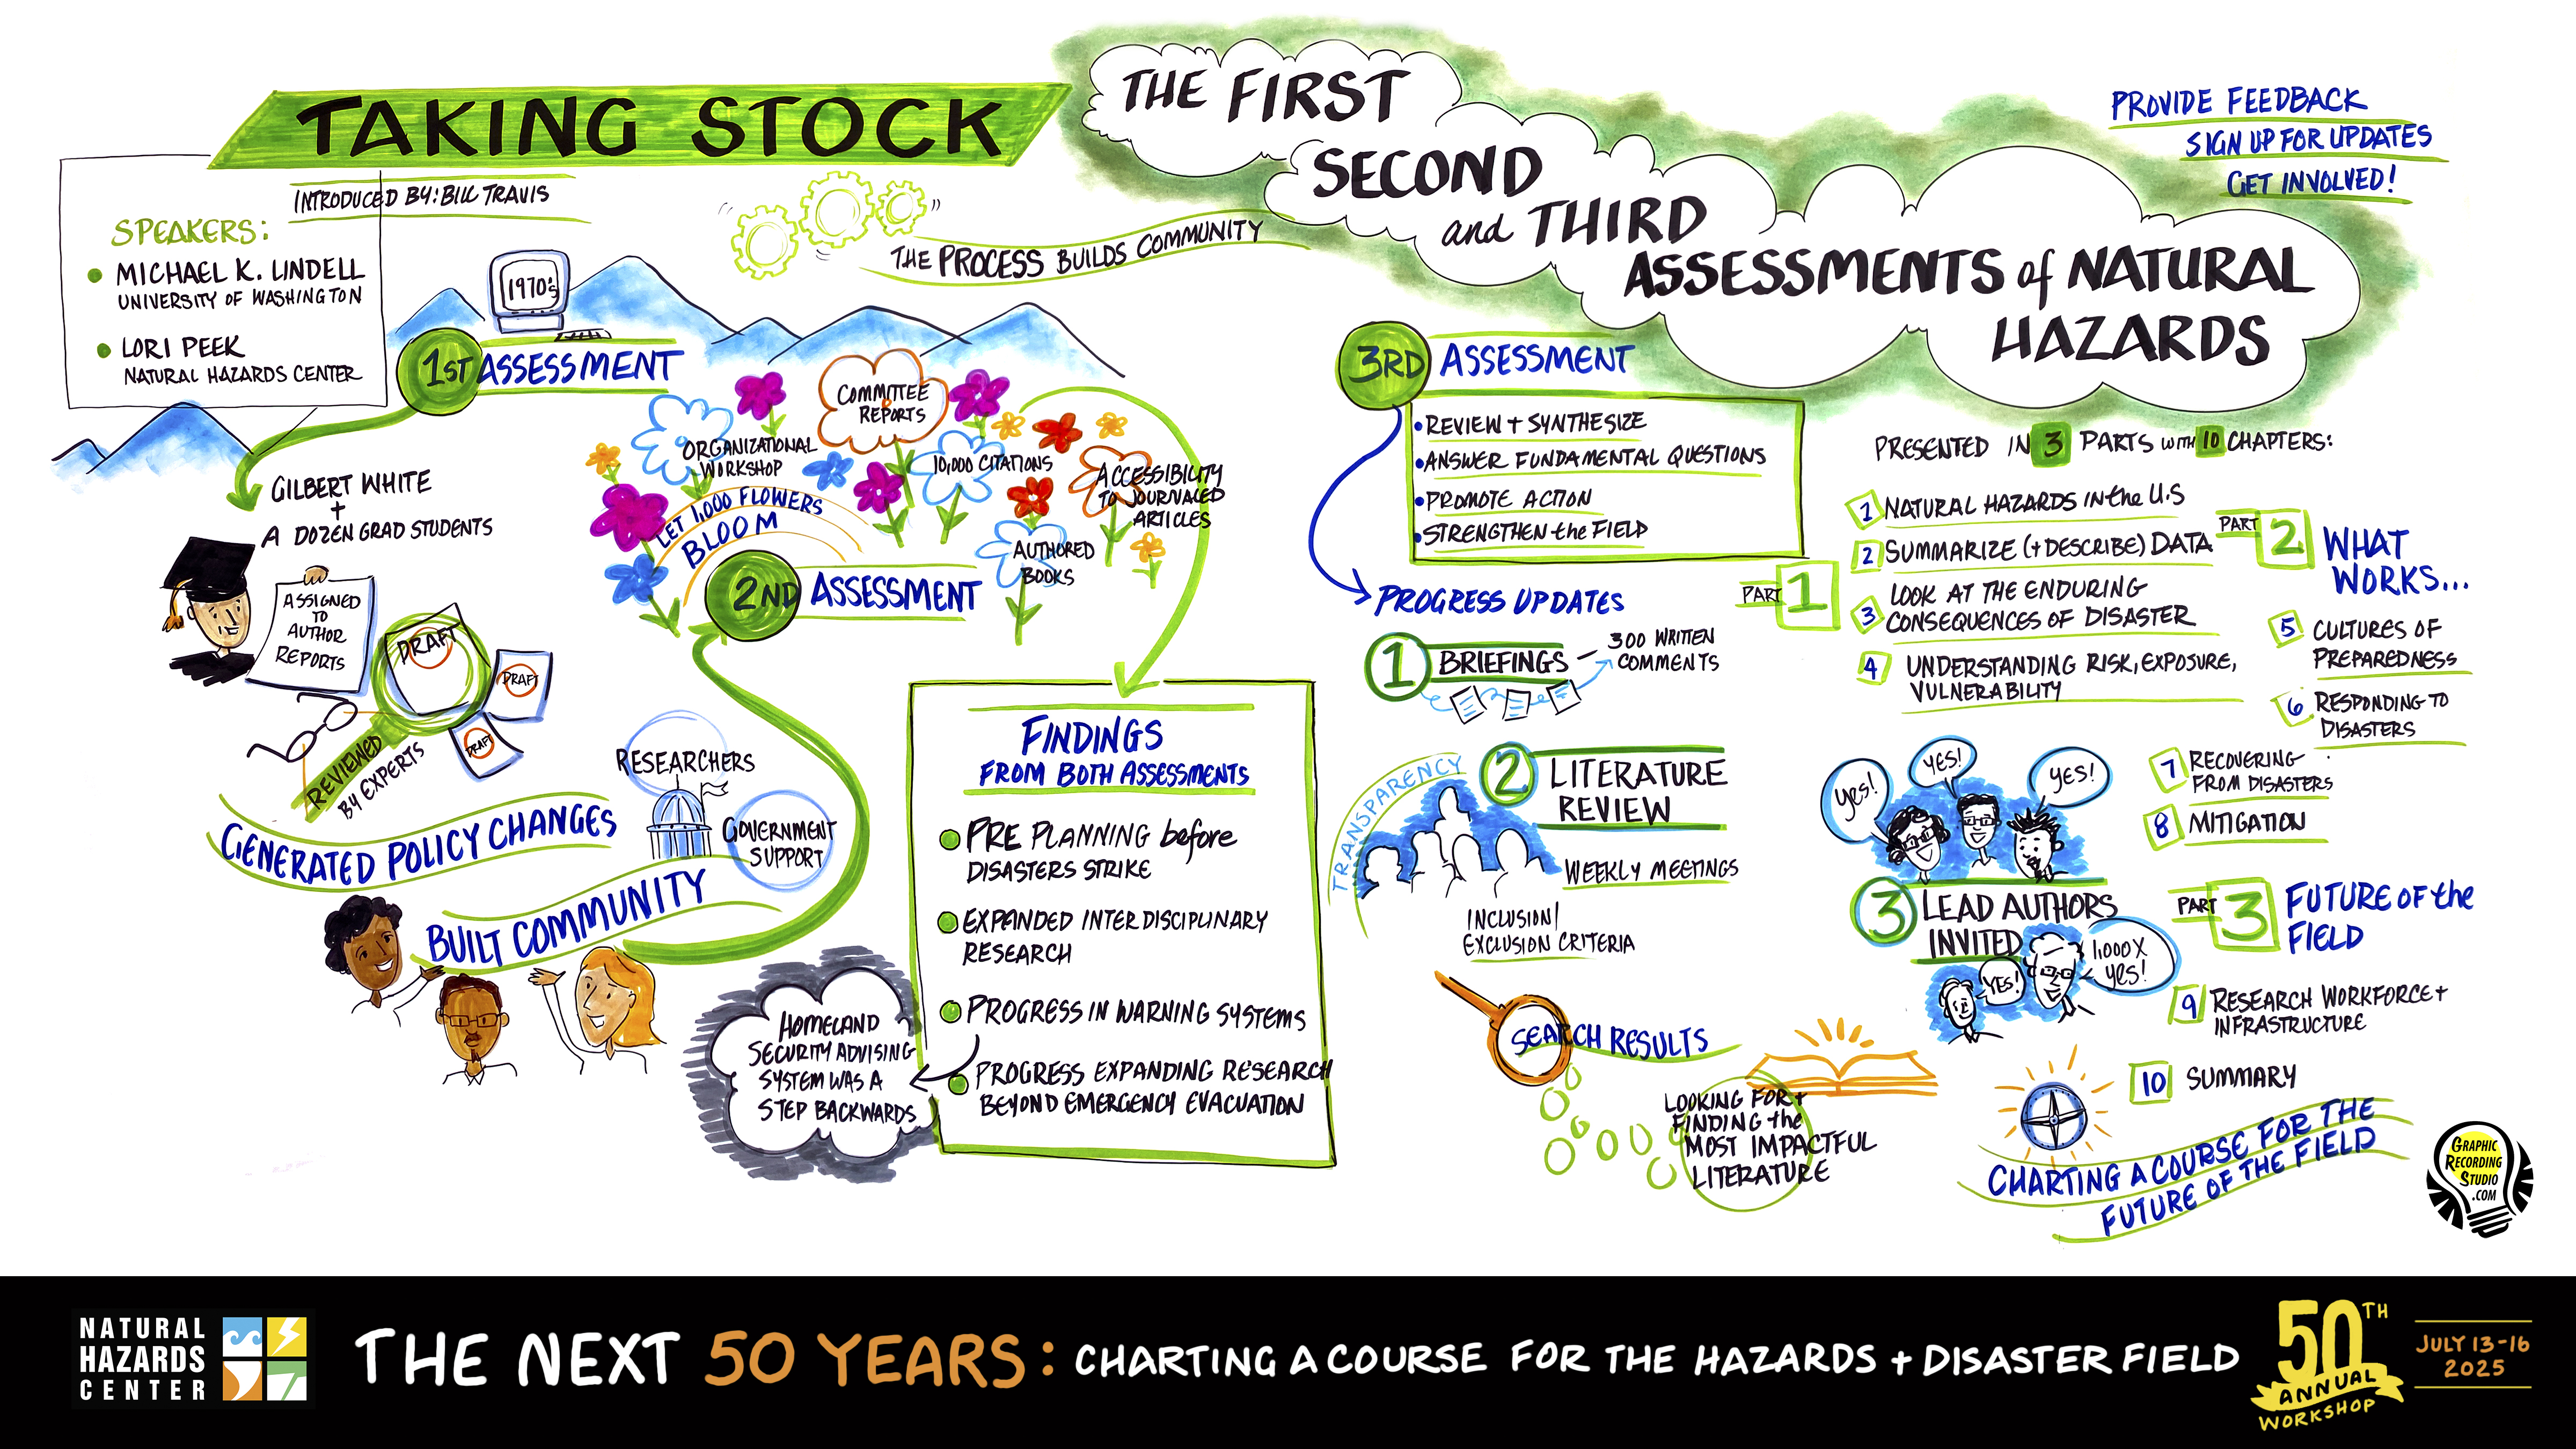 TAKING STOCK
INTRODUCED BY: BILL TRAVIS
SPEAKERS:
MICHAEL K. LINDELL
UNIVERSITY OF WASHINGTON
LORI PEEK
NATURAL HAZARDS CENTER
THE FIRST
SECOND
and THIRD
ASSESSMENTS of NATURAL
HAZARDS
THE PROCESS BUILDS COMMUNITY
PROVIDE FEEDBACK
SIGN UP FOR UPDATES
GET INVOLVED!
1970's
1ST ASSESSMENT
GILBERT WHITE
+
A DOZEN GRAD STUDENTS
ASSIGNED
TO
AUTHOR
REPORTS
DRAFT
DRAFT
DRAFT
REVIEWED
BY EXPERTS
GENERATED POLICY CHANGES
BUILT COMMUNITY
RESEARCHERS
GOVERNMENT
SUPPORT
COMMITTEE
REPORTS
ORGANIZATIONAL
WORKSHOP
10,000 CITATIONS
ACCESSIBILITY
TO JOURNALED
ARTICLES
LET 1,000 FLOWERS
BLOOM
AUTHORED
BOOKS
2ND ASSESSMENT
FINDINGS
FROM BOTH ASSESSMENTS
PRE PLANNING before
DISASTERS STRIKE
EXPANDED INTERDISCIPLINARY
RESEARCH
PROGRESS IN WARNING SYSTEMS
PROGRESS EXPANDING RESEARCH
BEYOND EMERGENCY EVACUATION
HOMELAND
SECURITY ADVISING
SYSTEM WAS A
STEP BACKWARDS
3RD ASSESSMENT
• REVIEW + SYNTHESIZE
• ANSWER FUNDAMENTAL QUESTIONS
• PROMOTE ACTION
• STRENGTHEN the FIELD
PROGRESS UPDATES
1 BRIEFINGS — 300 WRITTEN
COMMENTS
TRANSPARENCY
2 LITERATURE
REVIEW
WEEKLY MEETINGS
INCLUSION/
EXCLUSION CRITERIA
SEARCH RESULTS
LOOKING FOR +
FINDING the
MOST IMPACTFUL
LITERATURE
YES!
YES!
YES!
3 LEAD AUTHORS
INVITED
YES!
1,000 X
YES!
PRESENTED IN 3 PARTS WITH 10 CHAPTERS:
PART 1
1 NATURAL HAZARDS IN the U.S
2 SUMMARIZE (+ DESCRIBE) DATA
3 LOOK AT THE ENDURING
CONSEQUENCES OF DISASTER
4 UNDERSTANDING RISK, EXPOSURE,
VULNERABILITY
PART 2 WHAT
WORKS...
5 CULTURES OF
PREPAREDNESS
6 RESPONDING TO
DISASTERS
7 RECOVERING
FROM DISASTERS
8 MITIGATION
PART 3 FUTURE OF the
FIELD
9 RESEARCH WORKFORCE +
INFRASTRUCTURE
10 SUMMARY
CHARTING A COURSE FOR THE
FUTURE OF THE FIELD
GRAPHIC
RECORDING
STUDIO
.COM
NATURAL
HAZARDS
CENTER
THE NEXT 50 YEARS: CHARTING A COURSE FOR THE HAZARDS + DISASTER FIELD
50TH
ANNUAL
WORKSHOP
JULY 13-16
2025